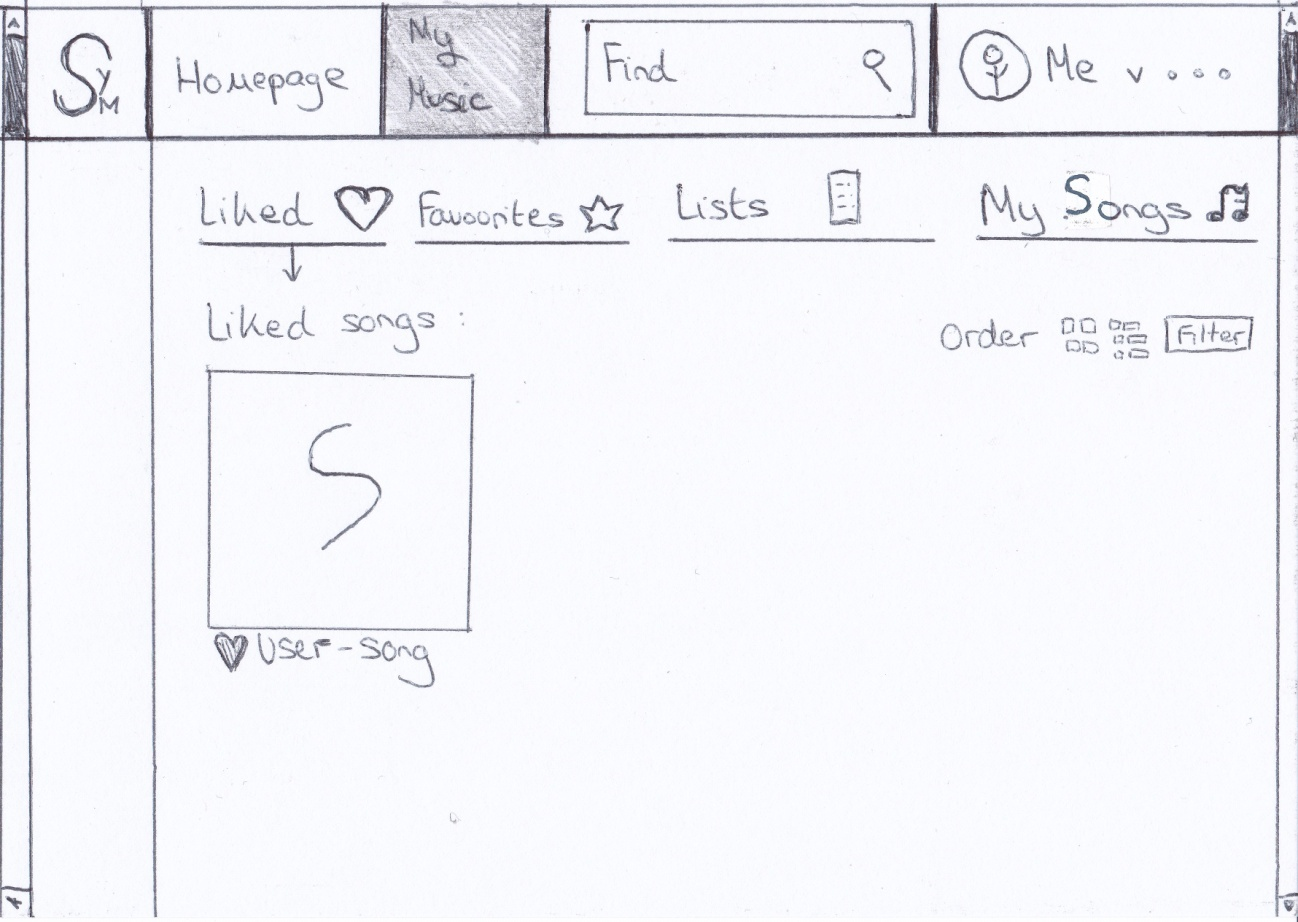 SYM
Homepage
My
Music
Find
Me
Liked
Favourites
Lists
My Songs
Liked songs :
Order
Filter
S
User-song